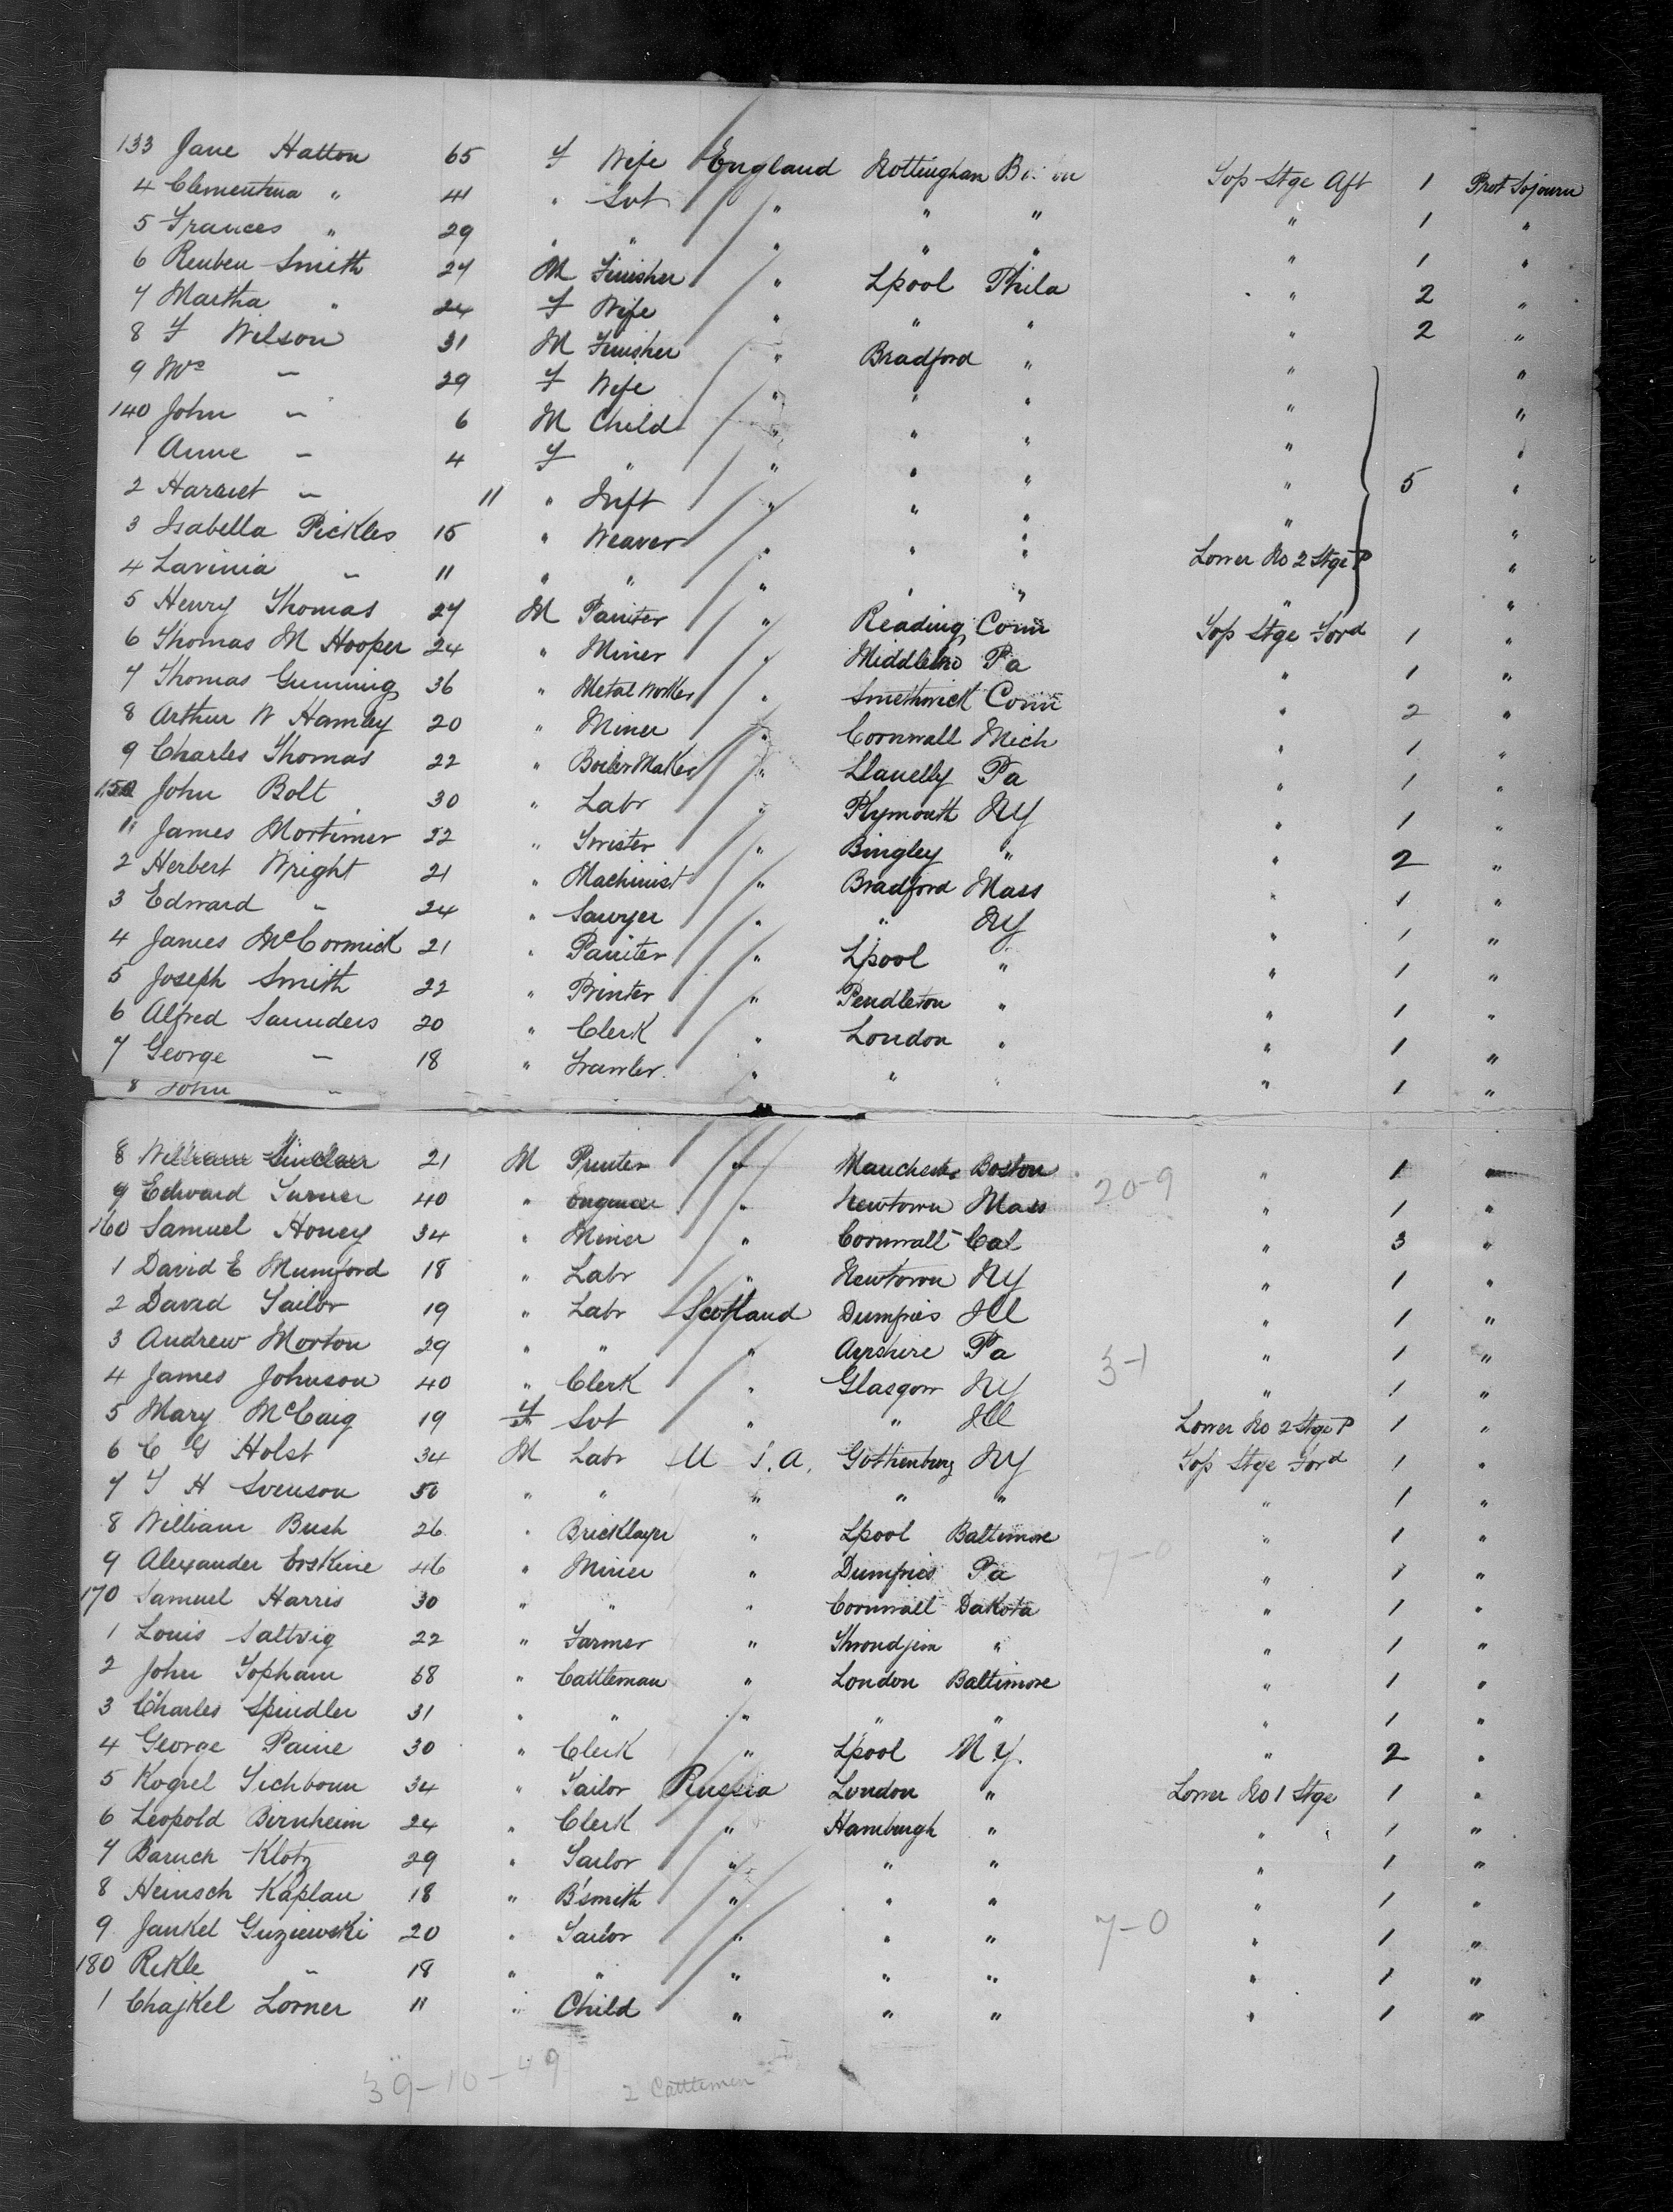 133 Jane Hatton 65 F Wife England Nottingham Top Stge Aft 1 Prot Sojourn
4 Clementina " 41 " Svt " " " " 1 "
5 Frances " 29 " " " " " " 1 "
6 Reuben Smith 27 M Finisher " Lpool Phila " 2 "
7 Martha " 24 F Wife " " " " 2 "
8 F Wilson 31 M Finisher " Bradford " " "
9 Mrs " 29 F Wife " " " " "
140 John " 6 M Child " " " " "
1 Anne " 4 F " " " " " "
2 Harriet " 11 " Inft " " " " 5 "
3 Isabella Pickles 15 " Weaver " " " Lower No 2 Stge P "
4 Lavinia " 11 " " " " " " "
5 Henry Thomas 27 M Painter " Reading Conn Top Stge Ford 1 "
6 Thomas M Hooper 24 " Miner " Pa " 1 "
7 Thomas Gunning 36 " Metal Worker " Smethwick Conn " 2 "
8 Arthur W Hamley 20 " Miner " Cornwall Mich " 1 "
9 Charles Thomas 22 " Boiler Maker " Llanelly Pa " 1 "
150 John Bolt 30 " Labr " Plymouth NY " 1 "
1 James Mortimer 22 " Twister " Bingley " " 2 "
2 Herbert Wright 21 " Machinist " Bradford Mass " 1 "
3 Edward " 24 " Sawyer " " NY " 1 "
4 James McCormick 21 " Painter " Lpool " " 1 "
5 Joseph Smith 22 " Printer " Pendleton " " 1 "
6 Alfred Saunders 20 " Clerk " London " " 1 "
7 George " 18 " " " " " 1 "
8 John "
8 William Sinclair 21 M Printer " Manchester Boston " 1 "
9 Edward Turner 40 " Engineer " Newtown Mass 20-9 " 1 "
160 Samuel Honey 34 " Miner " Cornwall Cal " 3 "
1 David E Mumford 18 " Labr " Newtown NY " 1 "
2 David Tailor 19 " Labr Scotland Dumfries Ill " 1 "
3 Andrew Morton 29 " " " Ayrshire Pa " 1 "
4 James Johnson 40 " Clerk " Glasgow NY 3-1 " 1 "
5 Mary McCaig 19 F Svt " " Ill Lower No 2 Stge P 1 "
6 C G Holst 34 M Labr U S. A. Gothenburg NY Top Stge Ford 1 "
7 T H Svenson 50 " " " " " " 1 "
8 William Bush 26 " Bricklayer " Lpool Baltimore " 1 "
9 Alexander Erskine 46 " Miner " Dumfries Pa 7-0 " 1 "
170 Samuel Harris 30 " " " Cornwall Dakota " 1 "
1 Louis Saltvig 22 " Farmer " Throndjem " " 1 "
2 John Topham 58 " Cattleman " London Baltimore " 1 "
3 Charles Spindler 31 " " " " " " 1 "
4 George Paine 30 " Clerk " Lpool N Y. " 2 "
5 Kogrel Tichboun 34 " Tailor Russia London " Lower No 1 Stge 1 "
6 Leopold Birnheim 24 " Clerk " Hamburgh " " 1 "
7 Baruch Klotz 29 " Tailor " " " " 1 "
8 Heinsch Kaplan 18 " B'smith " " " " 1 "
9 Jankel Guziewski 20 " Tailor " " " 7-0 " 1 "
180 Rikle " 18 " " " " " " 1 "
1 Chajkel Lorner 11 " Child " " " " 1 "
39-10-49 2 Cattlemen